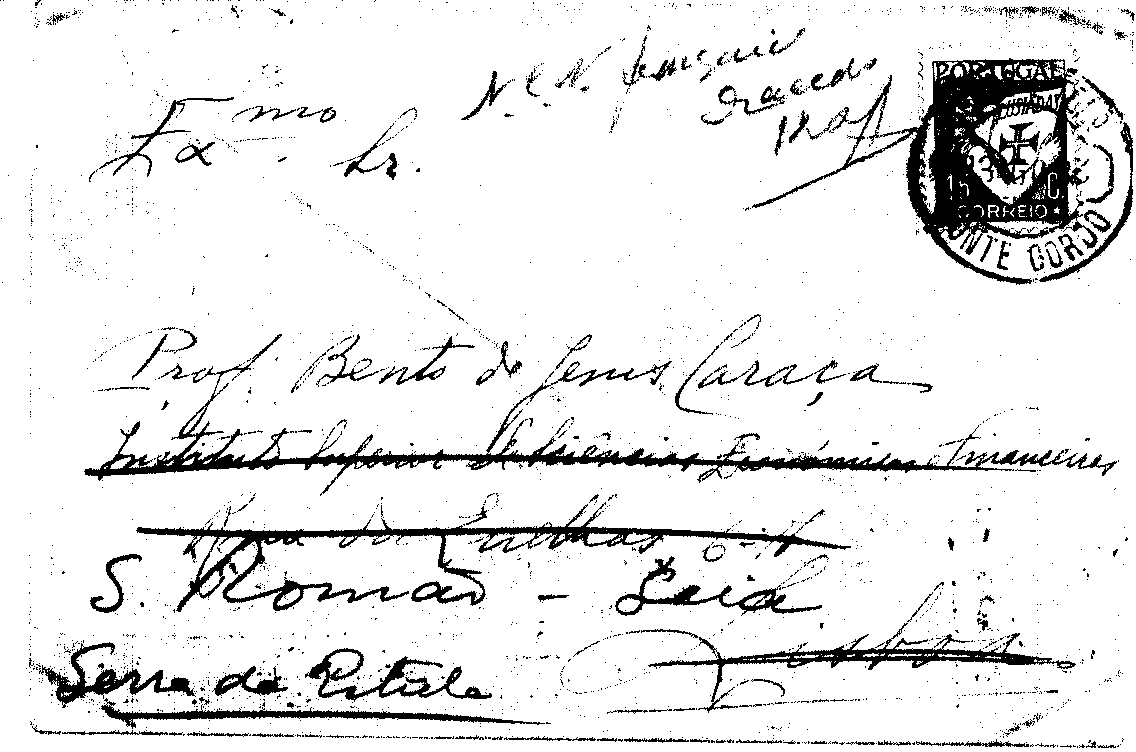 Exmo. Sr.
PORTUGAL
LUSIADAS
15 C
CORREIO
MONTE GORDO
Prof. Bento de Jesus Caraça
Instituto Superior de Sciencias Económicas Financeiras
Rua das 6-
S. Romão - Seia
Lisboa
Serra da Estrela